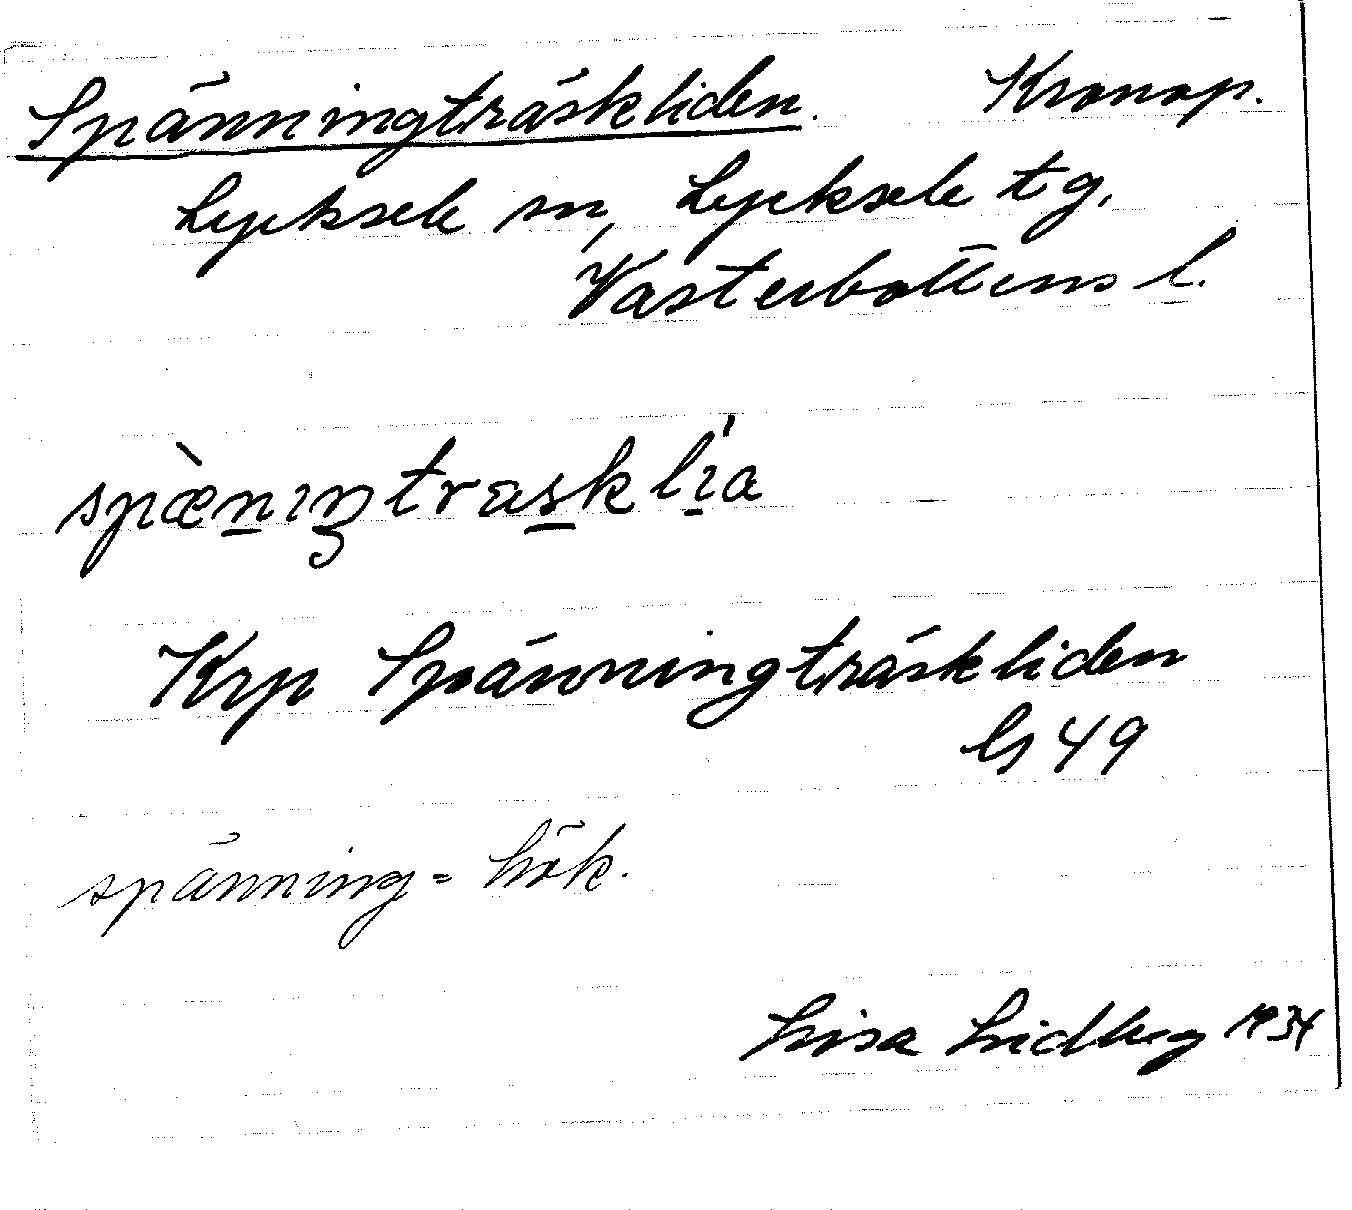 Spänningträskliden. Kronop.
Lycksele sn, Lycksele tg,
Västerbottens l.
spæ̀nıŋtraskli̍a
Krp Spänningträskliden
GS 49
spänning = hök.
Lisa Lidberg 1934